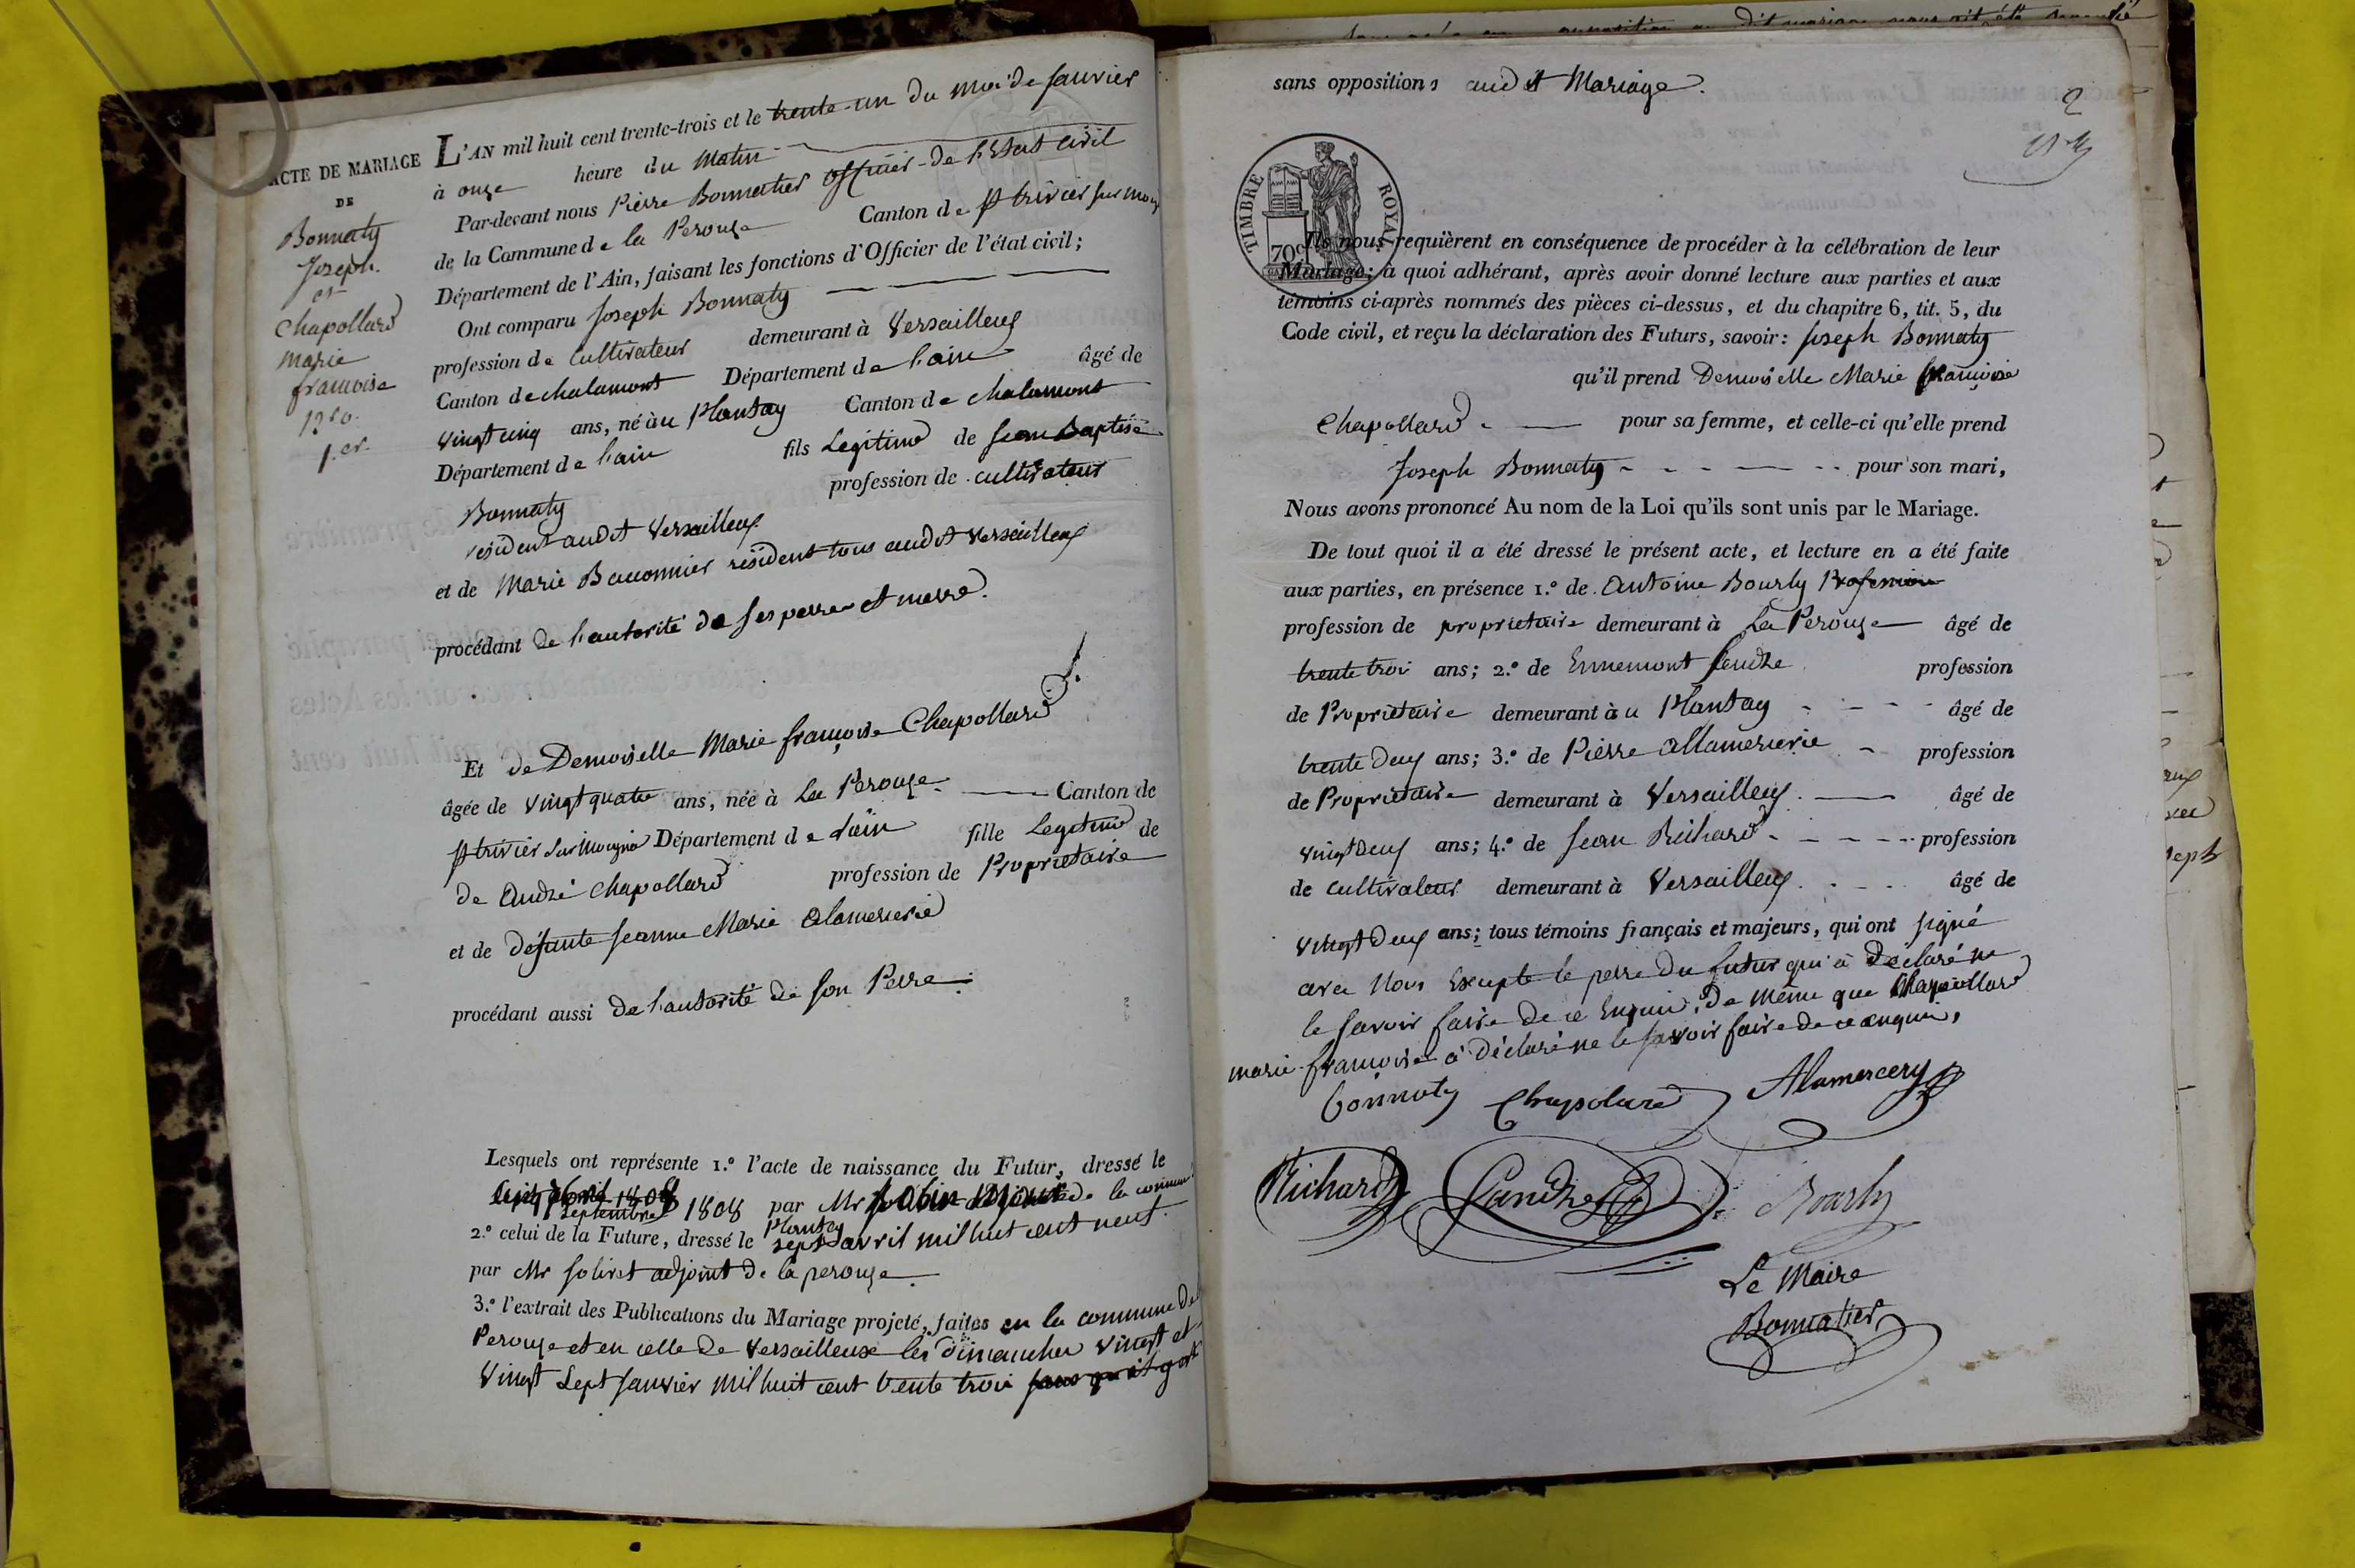 ACTE DE MARIAGE
DE
Bonnaty
Joseph.
et
Chapollard
Marie
francoise
1.er
L'AN mil huit cent trente-trois et le trente-un du moi de Janvier
à onze heure du Matin
Par-devant nous Pierre Bonnatier officier de l'Etat civil
de la Commune de la Perouze Canton de St trivier sur moig
Département de l'Ain, faisant les fonctions d'Officier de l'état civil;
Ont comparu Joseph Bonnaty
profession de Cultivateur demeurant à Versailleux
Canton de chalamont Département de l'ain âgé de
vingt cinq ans, né àu Plantay Canton de chalamont
Département de l'ain fils Legitime de Jean Baptise
Bonnaty profession de cultivateur
résident audit Versailleux
et de Marie Bauonnier résident tous audit Versailleux
procédant de l'autorité de ses perre et merre.
Et de Demoiselle Marie françoise Chapollard
âgée de vingt quatre ans, née à La Pérouze Canton de
St trivier sur Moignà Département de l'ain fille Legitime de
de André Chapollard profession de Proprietaire
et de défunte Jeanne Marie Alamercerie
procédant aussi de l'autorité de son Perre
Lesquels ont représente 1.º l'acte de naissance du Futur, dressé le
septembre 1808 par Mr adjoint de la commune
Plantay
2.º celui de la Future, dressé le sept avril mil huit cent neuf
par Mr Soliret adjoint de la perouze
3.º l'extrait des Publications du Mariage projeté, faites en la commune de
Perouze et en celle de Versailleuse les dimanches vingt et
Vingt Sept Janvier mil huit cent trente troi
sans oppositions audit Mariage.
2
TIMBRE ROYAL
70c
Ils nous requièrent en conséquence de procéder à la célébration de leur
Mariage; à quoi adhérant, après avoir donné lecture aux parties et aux
témoins ci-après nommés des pièces ci-dessus, et du chapitre 6, tit. 5, du
Code civil, et reçu la déclaration des Futurs, savoir: Joseph Bonnaty
qu'il prend Demoiselle Marie françoise
Chapollard pour sa femme, et celle-ci qu'elle prend
Joseph Bonnaty pour son mari,
Nous avons prononcé Au nom de la Loi qu'ils sont unis par le Mariage.
De tout quoi il a été dressé le présent acte, et lecture en a été faite
aux parties, en présence 1.º de Antoine Bourly Profession
profession de proprietaire demeurant à La Pérouze âgé de
trente troi ans; 2.º de Ennemont Jandre profession
de Proprietaire demeurant àu Plantay âgé de
trente deux ans; 3.º de Pierre Allamercerie profession
de Proprietaire demeurant à Versailleux âgé de
vingt deux ans; 4.º de Jean Richard profession
de cultivateur demeurant à Versailleux âgé de
vingt deux ans; tous témoins français et majeurs, qui ont signé
avec Nous Excepte le perre du futur qui à déclaré ne
le savoir faire de ce Enquis, De même que Chapollard
marie francoise à déclaré ne le savoir faire de ce enquis,
bonnaty Chapolard Alamercery
Richard Jandre Bourly
Le Maire
Bonnatier